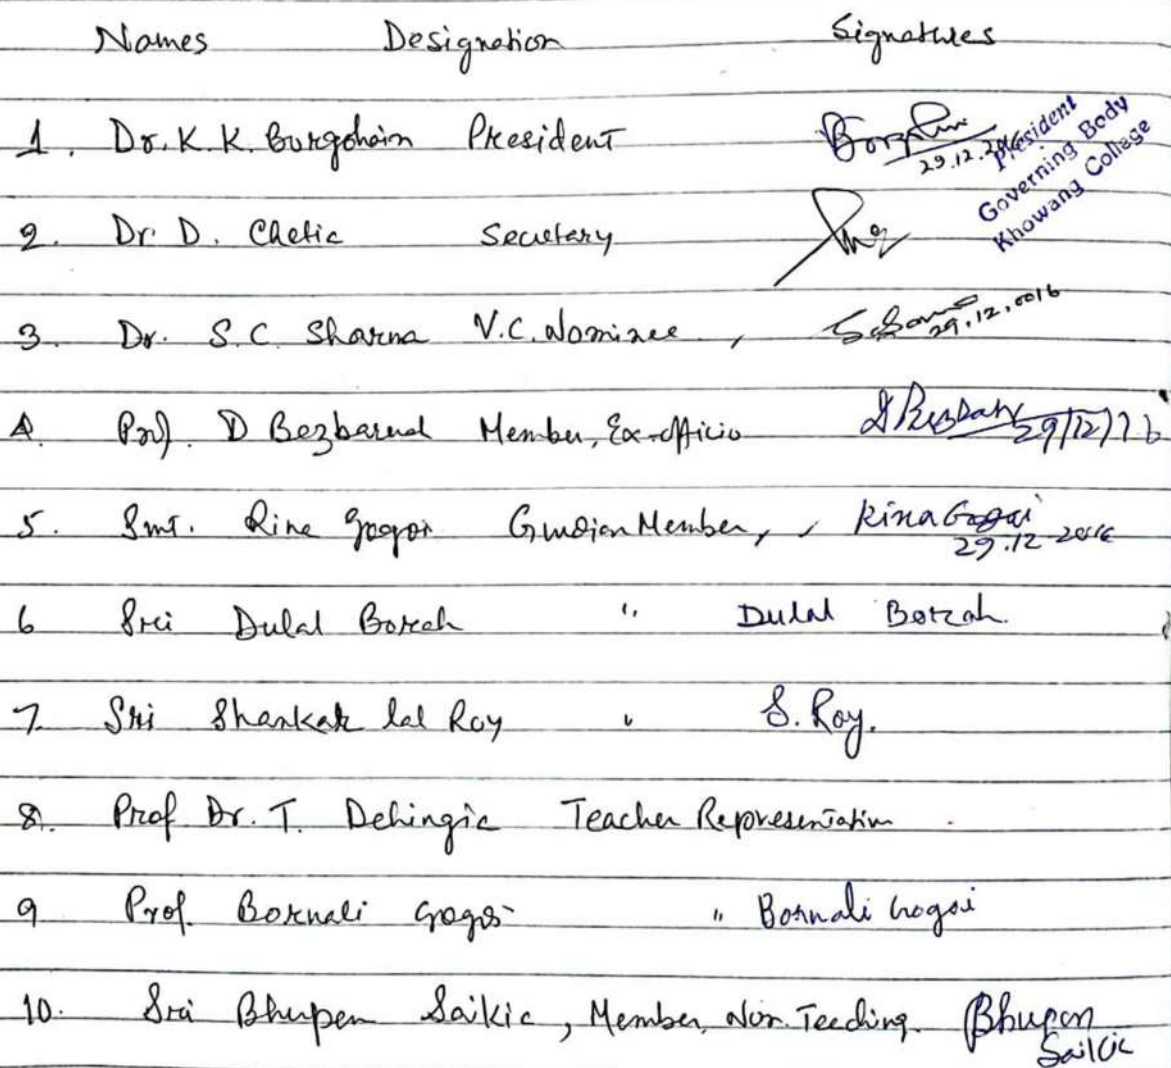 Names Designation Signatures
1. Dr. K. K. Burgohain President 29.12.2016
President
Governing Body
Khowang Collage
2. Dr. D. Chetia Secretary
3. Dr. S.C. Sharma V.C. Nominee , 29.12.2016
4. Prof. D Bezbarua Member, Ex-officio 29/12/16
5. Smt. Rina Gogoi Guardian Member, , Rina Gogoi
29.12 2016
6 Sri Dulal Borah " Dulal Borah.
7. Sri Shankar lal Roy " S. Roy.
8. Prof Dr. T. Dehingia Teacher Representative
9 Prof. Bornali Gogoi " Bornali Gogoi
10. Sri Bhupen Saikia, Member, Non. Teaching. Bhupen
Saikia